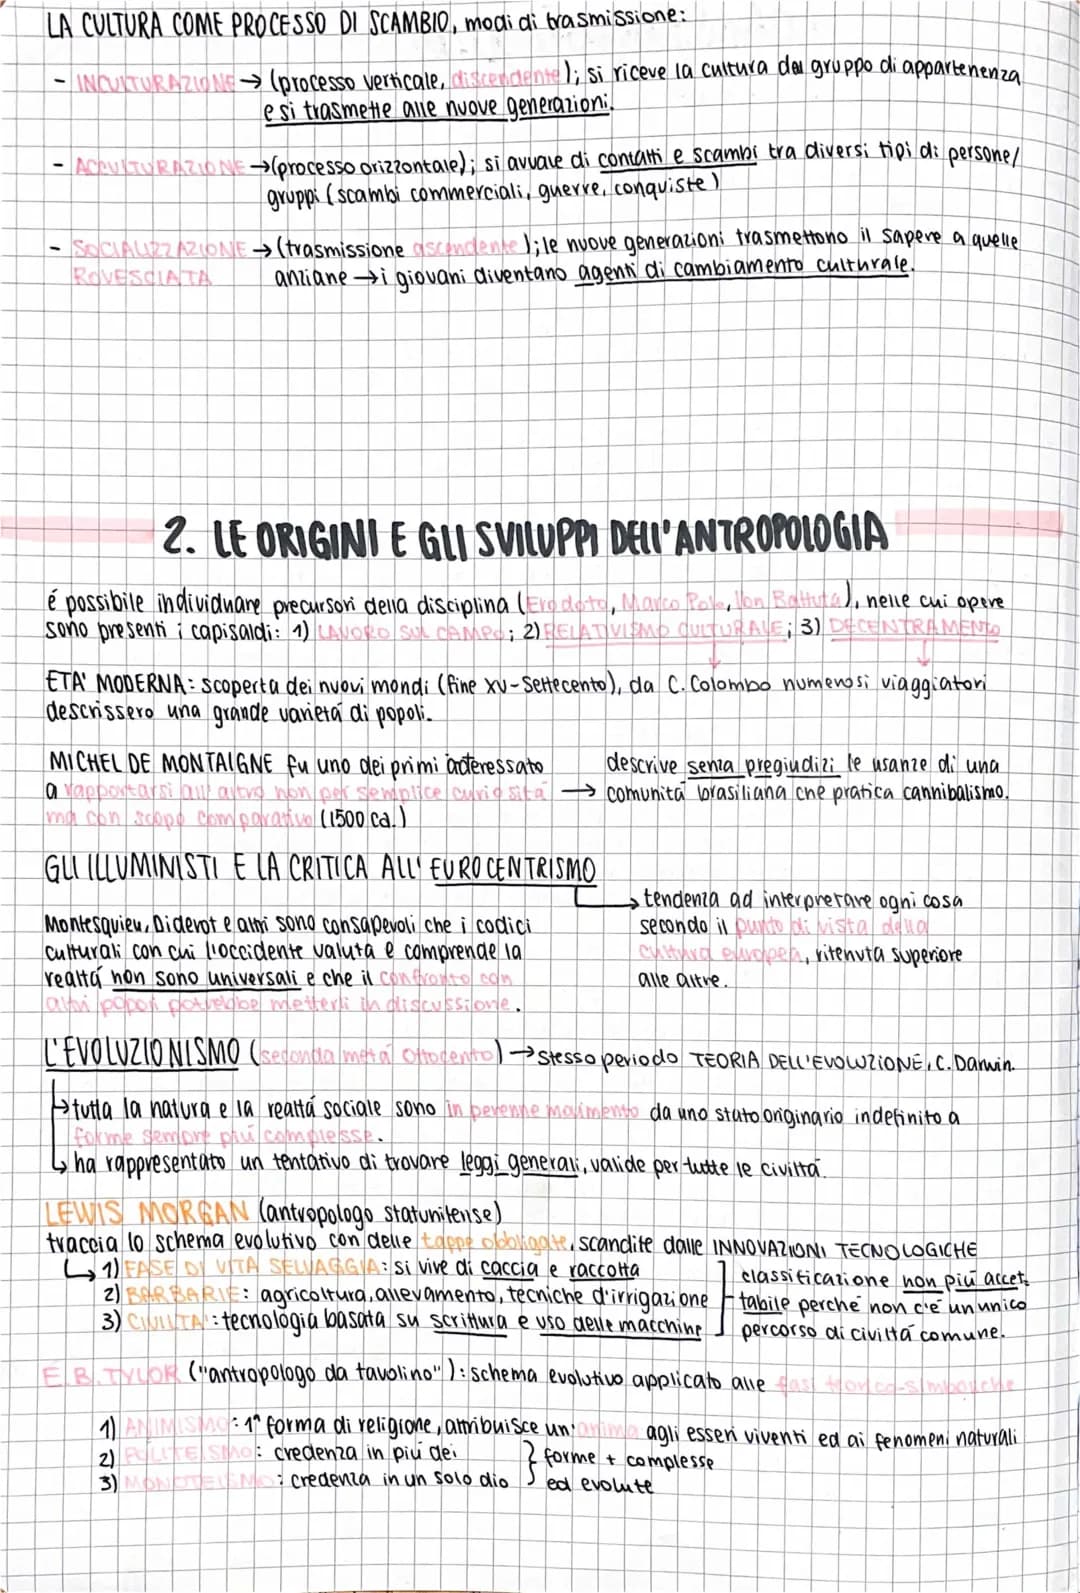 LA CULTURA COME PROCESSO DI SCAMBIO, modi di trasmissione:
- INCULTURAZIONE → (processo verticale, discendente); si riceve la cultura dal gruppo di appartenenza
e si trasmette alle nuove generazioni.
- ACCULTURAZIONE → (processo orizzontale); si avvale di contatti e scambi tra diversi tipi di persone/
gruppi (scambi commerciali, guerre, conquiste)
- SOCIALIZZAZIONE → (trasmissione ascendente); le nuove generazioni trasmettono il sapere a quelle
ROVESCIATA anziane → i giovani diventano agenti di cambiamento culturale.
2. LE ORIGINI E GLI SVILUPPI DELL'ANTROPOLOGIA
é possibile individuare precursori della disciplina (Erodoto, Marco Polo, Ibn Battuta), nelle cui opere
sono presenti i capisaldi: 1) LAVORO SUL CAMPO; 2) RELATIVISMO CULTURALE; 3) DECENTRAMENTO
ETA' MODERNA: scoperta dei nuovi mondi (fine XV-Settecento), da C. Colombo numerosi viaggiatori
descrissero una grande varietá di popoli.
MICHEL DE MONTAIGNE fu uno dei primi interessato
a rapportarsi all'altro non per semplice curiositá
ma con scopo comparativo (1500 ca.)
→ descrive senza pregiudizi le usanze di una
comunitá brasiliana che pratica cannibalismo.
GLI ILLUMINISTI E LA CRITICA ALL'EUROCENTRISMO
→ tendenza ad interpretare ogni cosa
secondo il punto di vista della
cultura europea, ritenuta superiore
alle altre.
Montesquieu, Diderot e altri sono consapevoli che i codici
culturali con cui l'occidente valuta e comprende la
realtá non sono universali e che il confronto con
altri popoli potrebbe metterli in discussione.
L'EVOLUZIONISMO (seconda metá Ottocento) → stesso periodo TEORIA DELL'EVOLUZIONE, C. Darwin.
→ tutta la natura e la realtá sociale sono in perenne movimento da uno stato originario indefinito a
forme sempre piú complesse.
↳ ha rappresentato un tentativo di trovare leggi generali, valide per tutte le civiltá.
LEWIS MORGAN (antropologo statunitense)
traccia lo schema evolutivo con delle tappe obbligate, scandite dalle INNOVAZIONI TECNOLOGICHE
↳ 1) FASE DI VITA SELVAGGIA: si vive di caccia e raccolta
2) BARBARIE: agricoltura, allevamento, tecniche d'irrigazione
3) CIVILTA': tecnologia basata su scrittura e uso delle macchine
classificazione non piú accet-
tabile perché non c'é un unico
percorso di civiltá comune.
E. B. TYLOR ("antropologo da tavolino"): schema evolutivo applicato alle fasi storico-simboliche
1) ANIMISMO: 1ª forma di religione, attribuisce un'anima agli esseri viventi ed ai fenomeni naturali
2) POLITEISMO: credenza in piú dei
3) MONOTEISMO: credenza in un solo dio
} forme + complesse
ed evolute